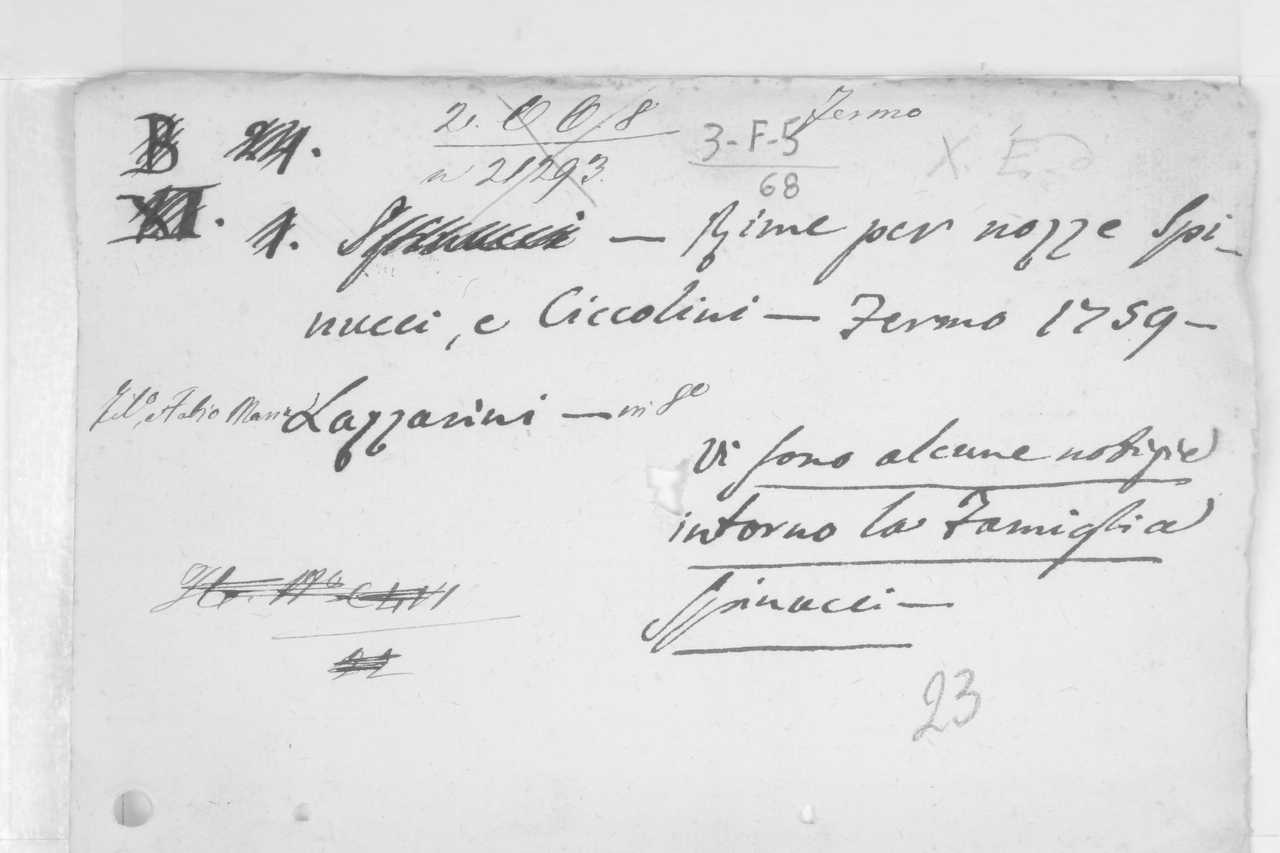 2. O O/8 Fermo
B 24. 3-F-5 X. E.
n 21293. 68
XI. 1. Spinucci — Rime per nozze Spi-
nucci, e Ciccolini — Fermo 1759 -
Fabio Maria Lazzarini — in 8º
Vi sono alcune notizie
intorno la Famiglia
Spinucci —
23